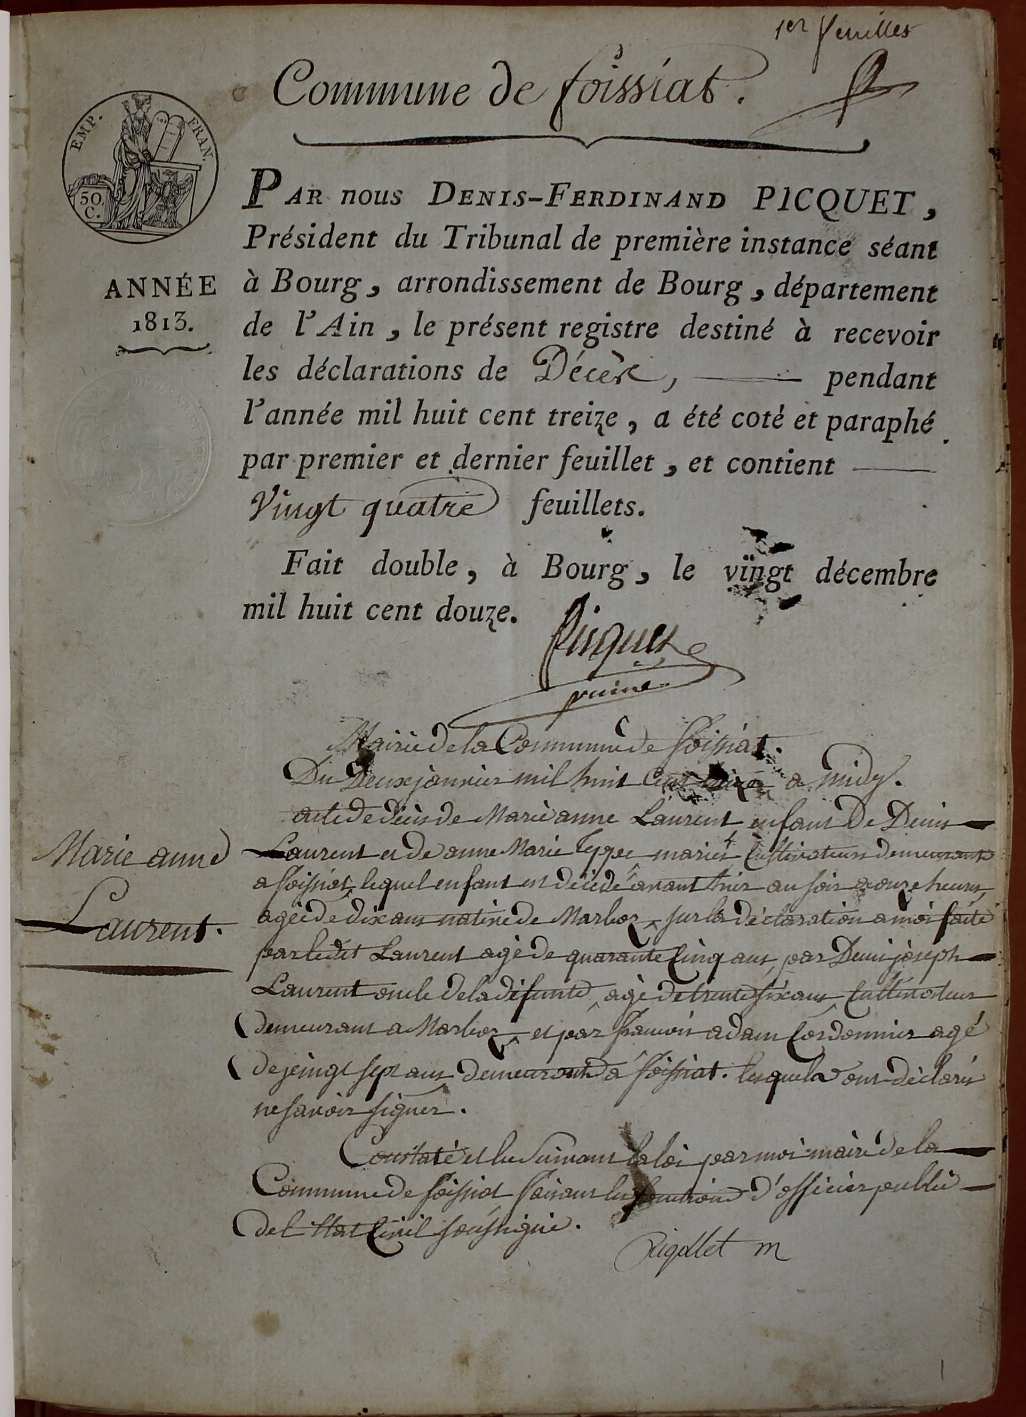 1er feuillet
Commune de foissiat.
EMP. FRAN.
50 C.
ANNÉE
1813.
PAR nous DENIS-FERDINAND PICQUET,
Président du Tribunal de première instance séant
à Bourg, arrondissement de Bourg, département
de l'Ain, le présent registre destiné à recevoir
les déclarations de Décès, pendant
l'année mil huit cent treize, a été coté et paraphé
par premier et dernier feuillet, et contient
Vingt quatre feuillets.
Fait double, à Bourg, le vingt décembre
mil huit cent douze.
Picquet
Mairie de la Commune de foissiat.
Du Deux janvier mil huit Cent treize a midy.
Marie anne
Laurent.
acte de décès de Marie anne Laurent enfant De Denis
Laurent et de anne Marie mariés Cultivateurs demeurants
a foissiat, lequel enfant est décédé avant hier au soir a onze heures
agée de dix ans native de Marboz, sur la déclaration a moi faite
par ledit Laurent agé de quarante Cinq ans, par Denis joseph
Laurent oncle de la défunte, agé de trente six ans Cultivateur
demeurant a Marboz, et par francois adam Cordonnier agé
de vingt sept ans demeurant a foissiat. lesquels ont déclarés
ne savoir signer.
Constaté et lu Suivant la loi par moi maire de la
Commune de foissiat faisant les fonctions d'officier public
de l'état Civil soussigné.
Rigollet m
1